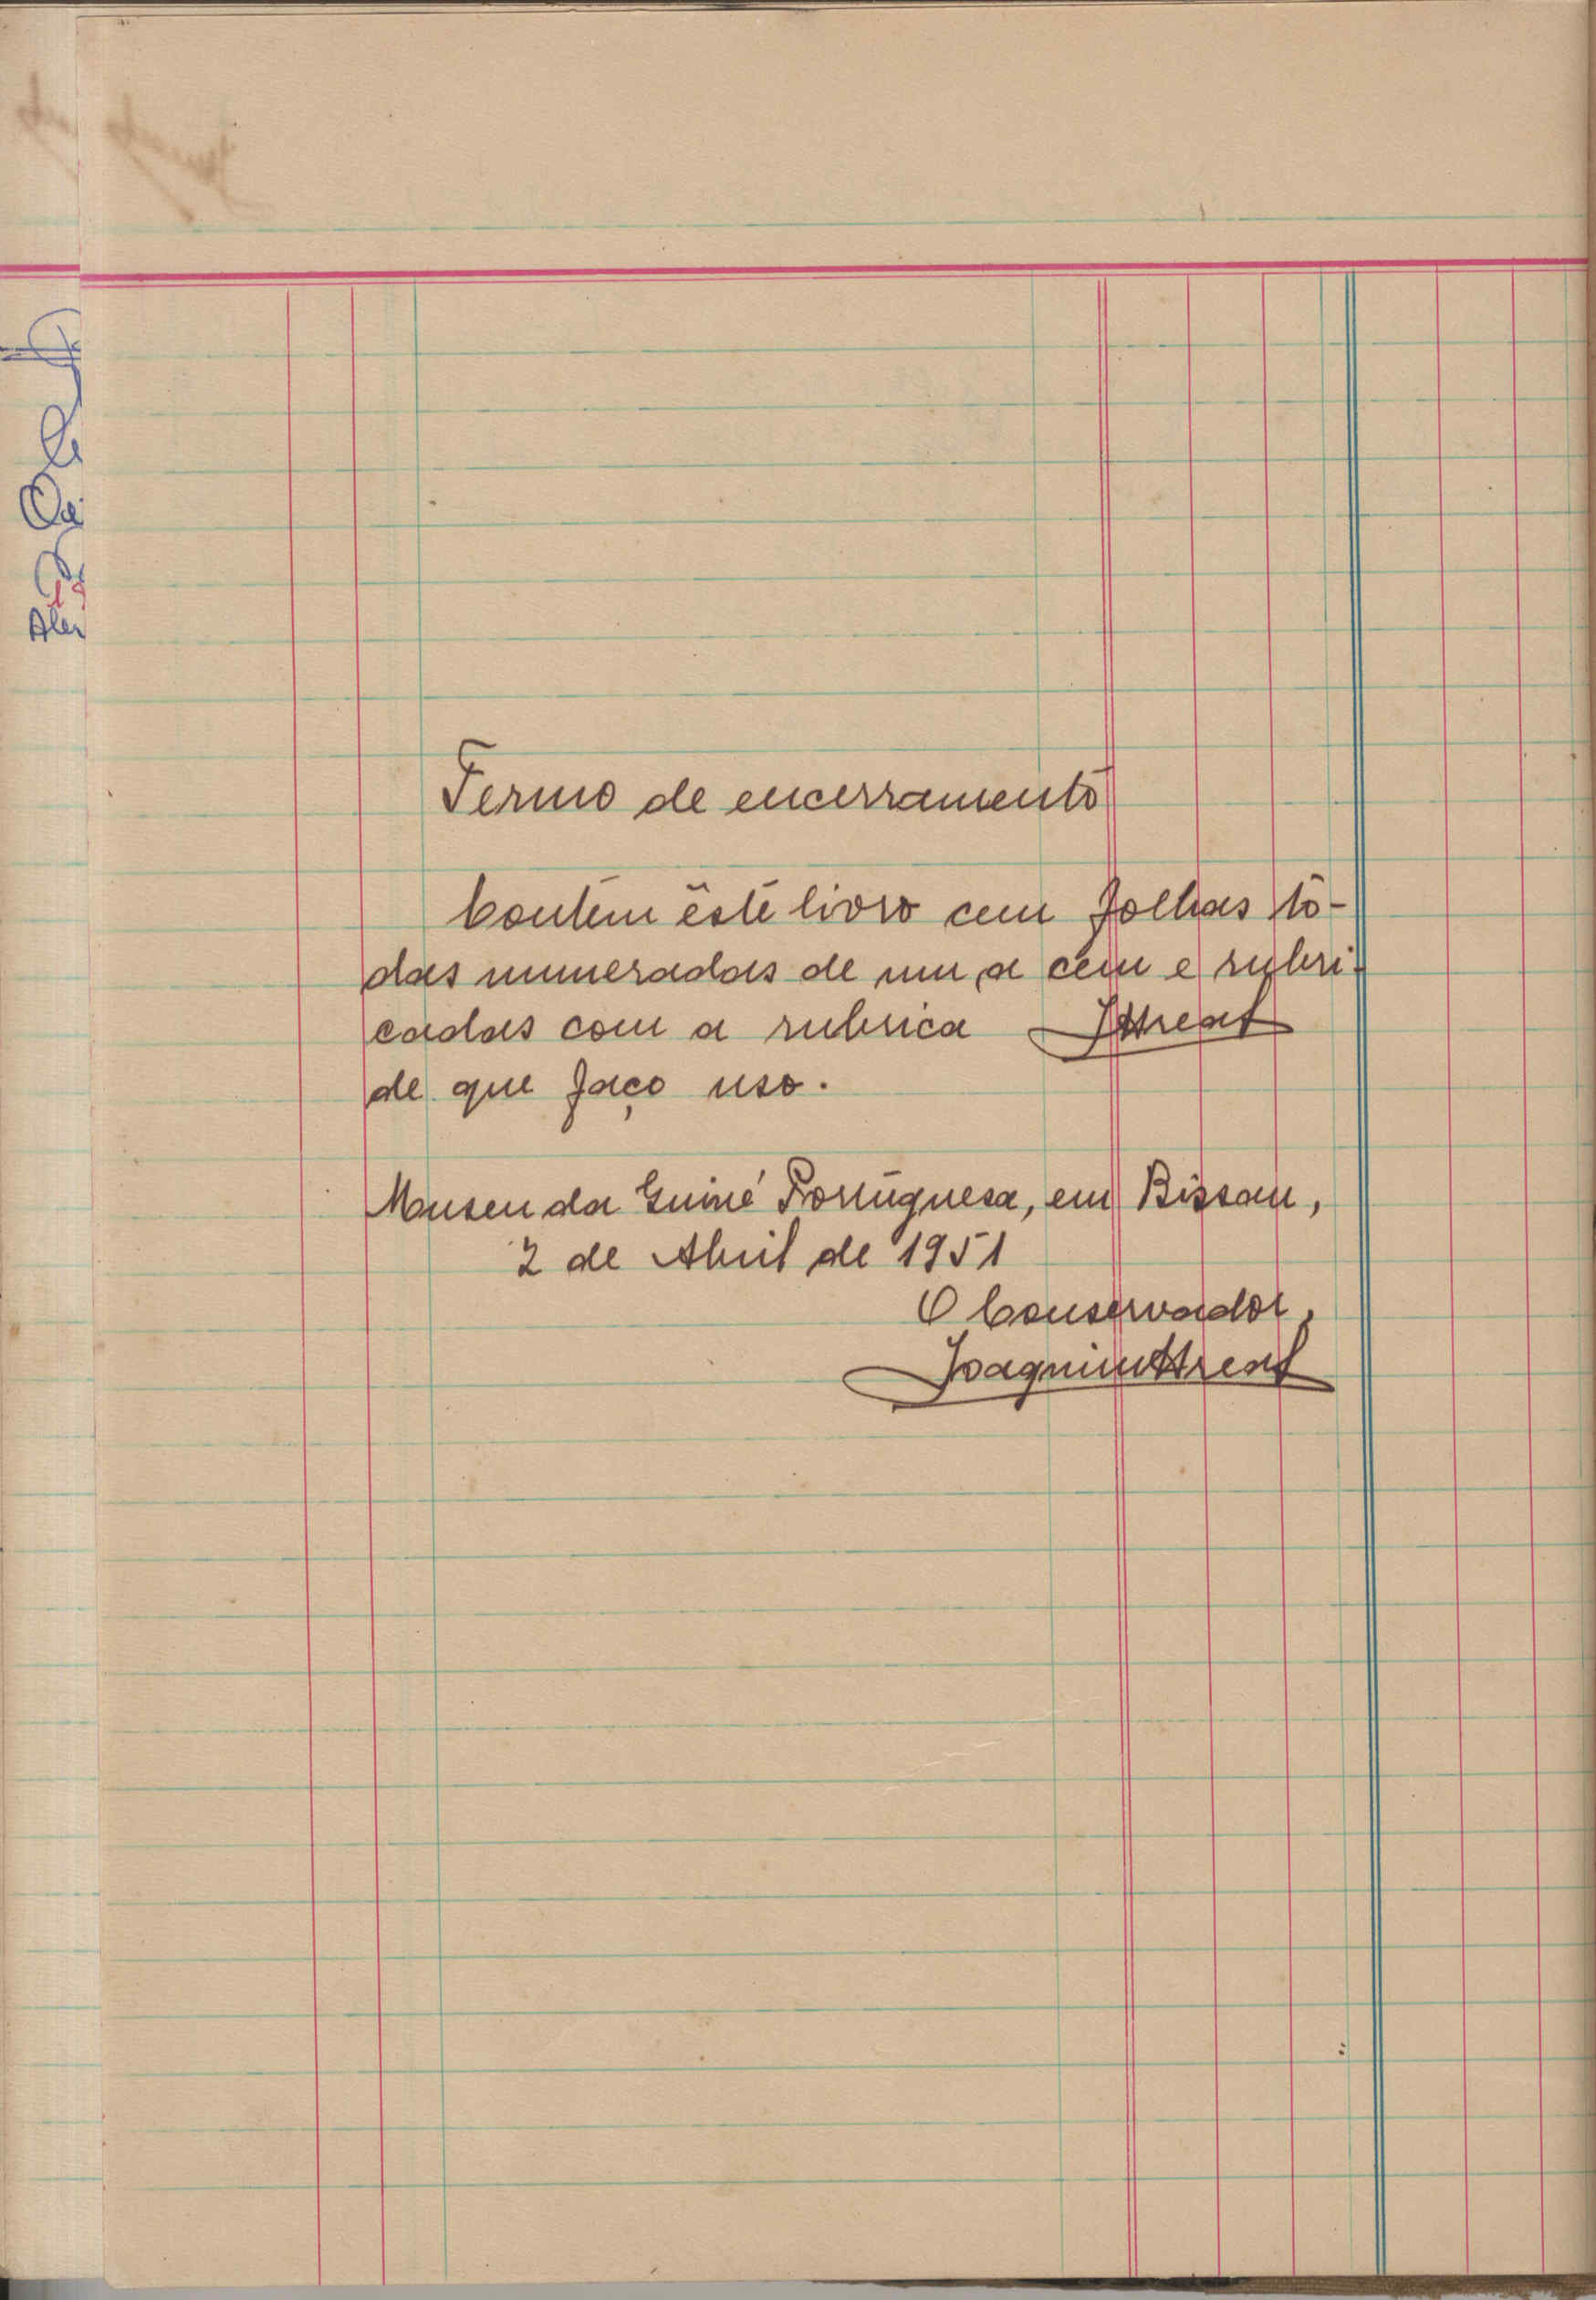 Termo de encerramento
Contem êste livro cem folhas tô-
das numeradas de um a cem e rubri-
cadas com a rubrica
de que faço uso.
Museu da Guiné Portuguesa, em Bissau,
2 de Abril de 1951
O Conservador,
Joaquim Areal
Aler